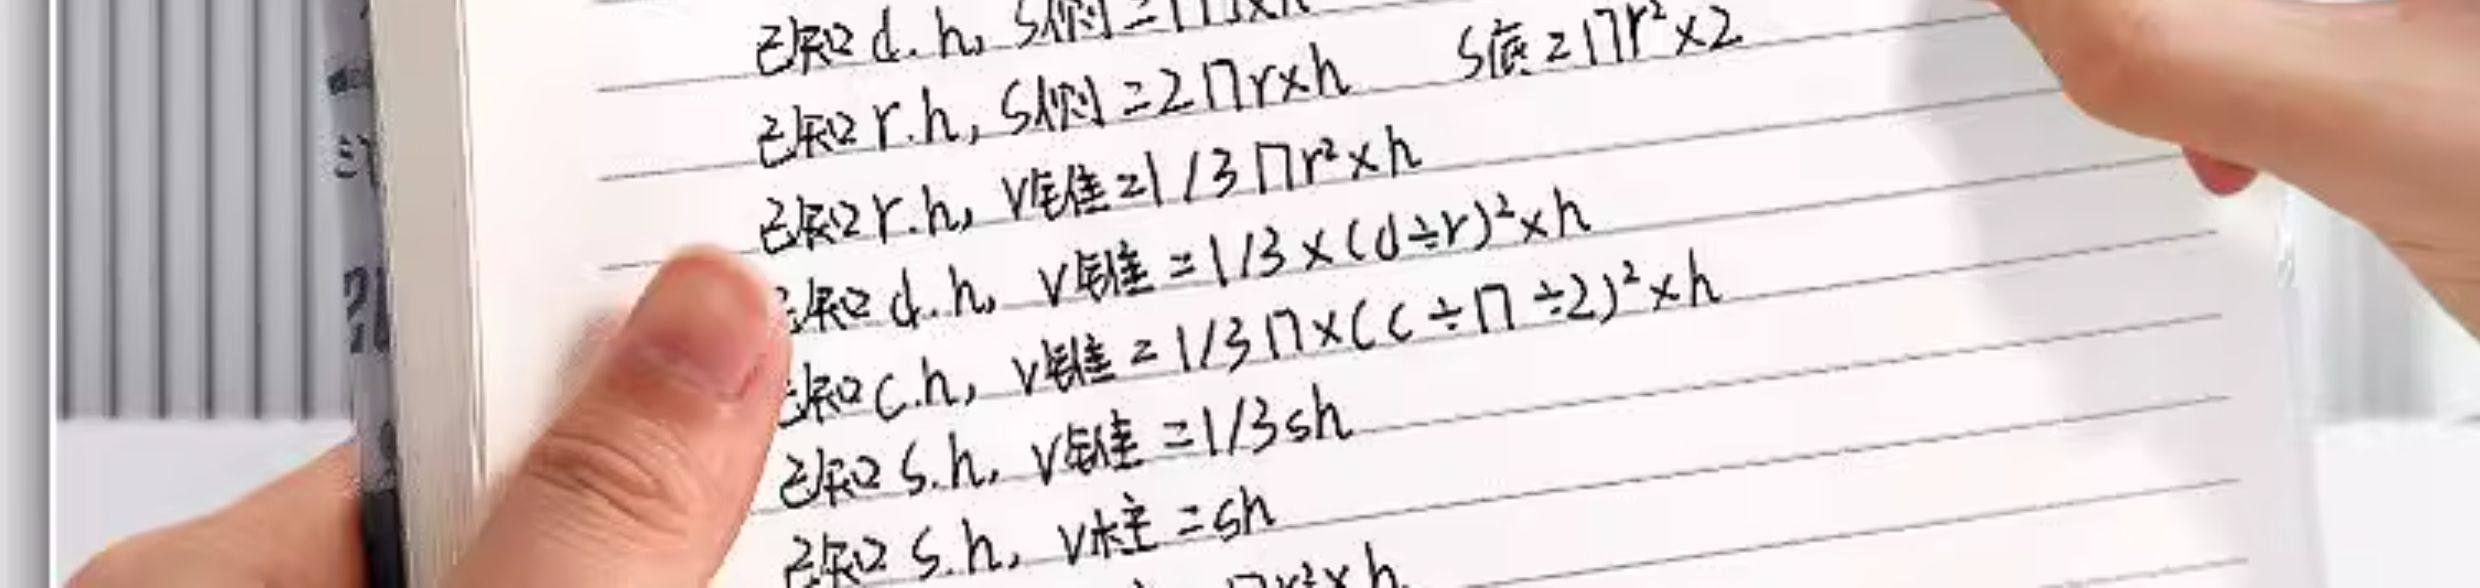 已知d.h, S侧=
已知r.h, S侧=2∏r×h S底=∏r²×2
已知r.h, V锥=1/3∏r²×h
已知d.h, V锥=1/3×(d÷r)²×h
已知c.h, V锥=1/3∏×(c÷∏÷2)²×h
已知s.h, V锥=1/3sh
已知s.h, V柱=sh
∏r²×h